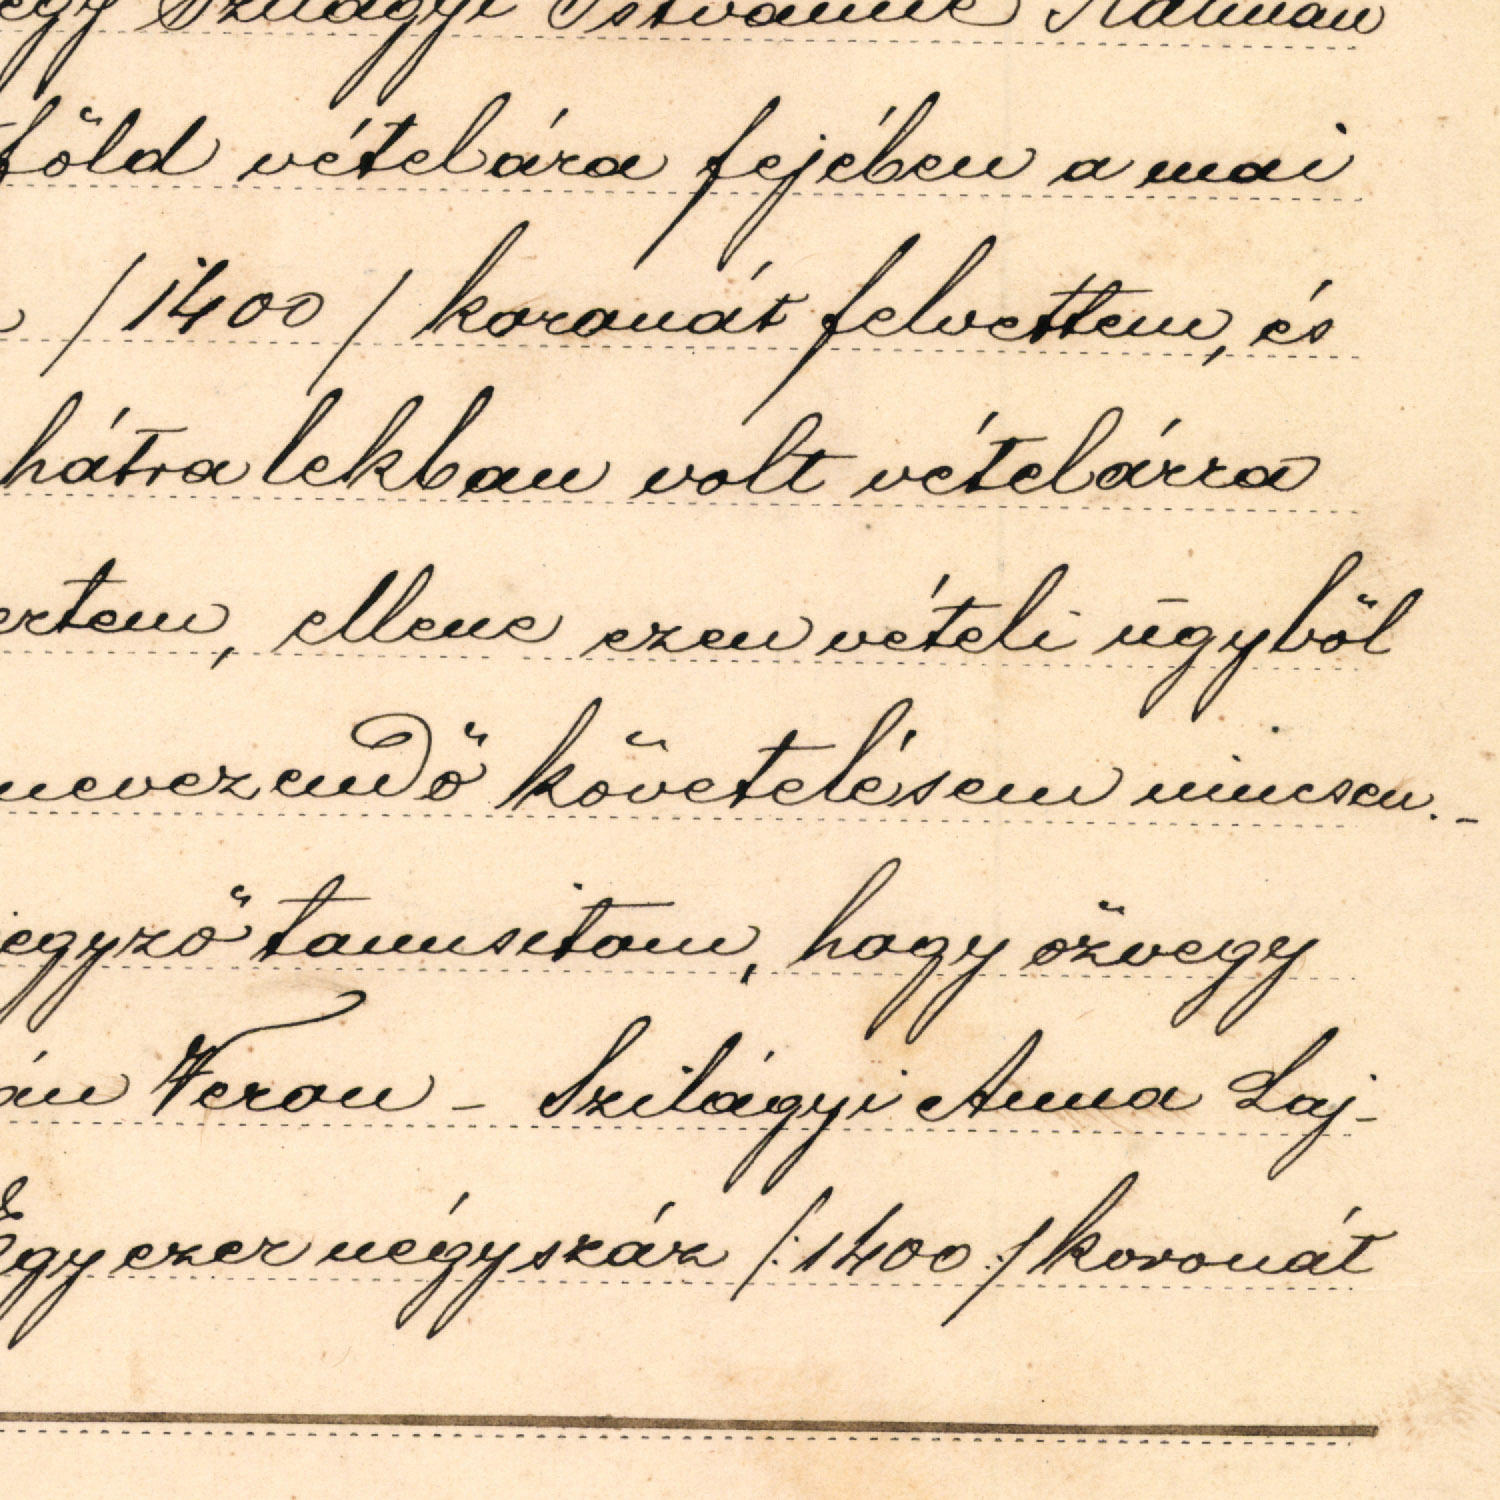 egy Szilágyi Istvánné Kálmán
föld vételára fejében a mai
/1400/ koronát felvettem, és
hátralekban volt vételárra
ertem, ellene ezen vételi ügyből
nevezendő követelésem nincsen.-
jegyző tanusitom, hogy özvegy
án Veron - Szilágyi Anna Laj-
Egyezer négyszáz /:1400:/ koronát